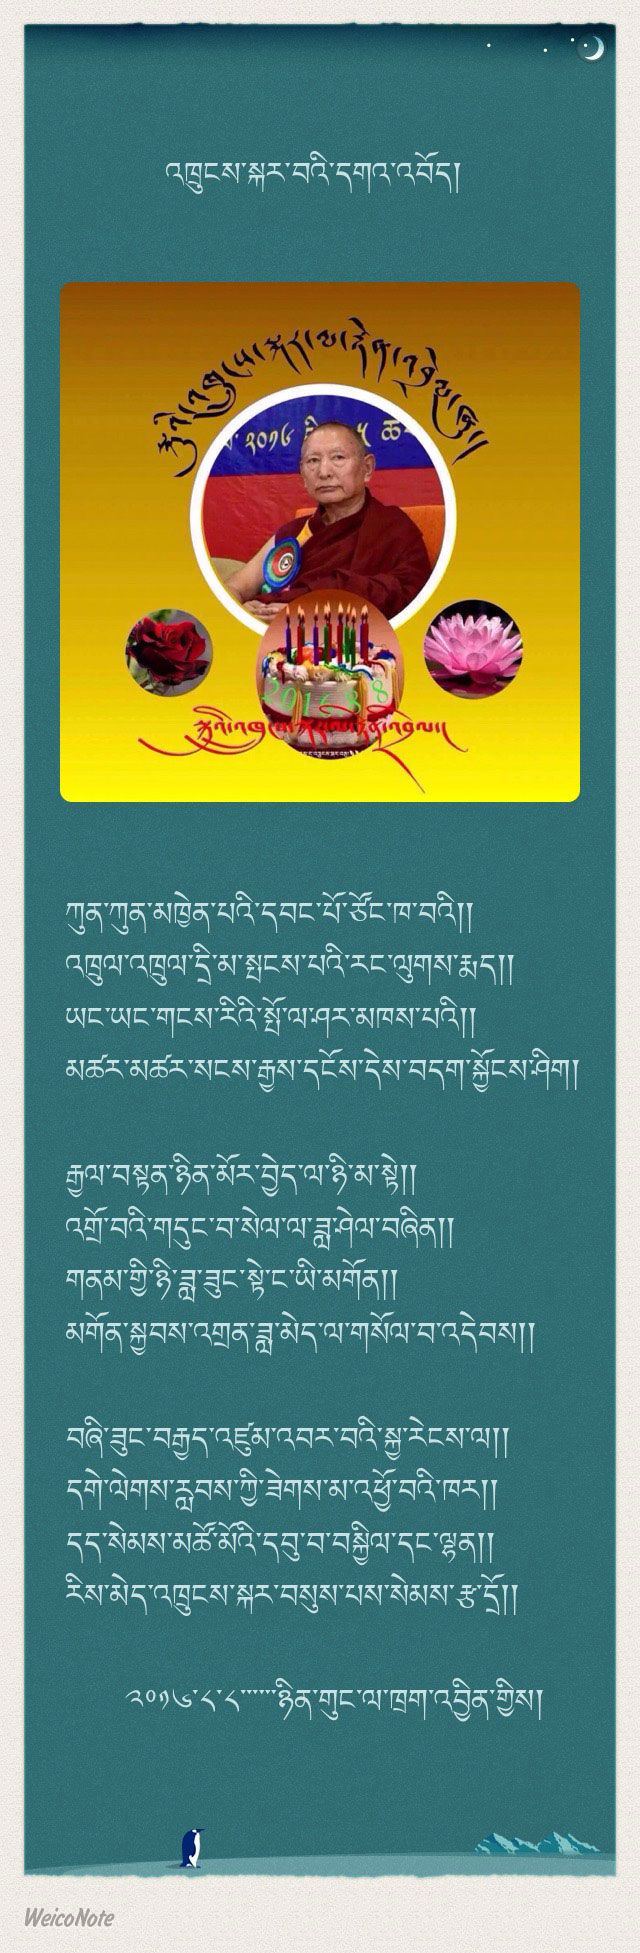 འཁྲུངས་སྐར་བའི་དགའ་འབོད།
༢༠༡༦
2016 8 8
ཀུན་ཀུན་མཁྱེན་པའི་དབང་པོ་ཙོང་ཁ་བའི།།
འཁྲུལ་འཁྲུལ་དྲི་མ་སྤངས་པའི་རང་ལུགས་རྨད།།
ཡང་ཡང་གངས་རིའི་སྤོ་ལ་ཤར་མཁས་པའི།།
མཚར་མཚར་སངས་རྒྱས་དངོས་དེས་བདག་སྐྱོངས་ཤིག།
རྒྱལ་བསྟན་ཉིན་མོར་བྱེད་ལ་ཉི་མ་སྟེ།།
འགྲོ་བའི་གདུང་བ་སེལ་ལ་ཟླ་ཤེལ་བཞིན།།
གནམ་གྱི་ཉི་ཟླ་ཟུང་སྟེ་ང་ཡི་མགོན།།
མགོན་སྐྱབས་འགྲན་ཟླ་མེད་ལ་གསོལ་བ་འདེབས།།
བཞི་ཟུང་བརྒྱད་འཛུམ་འབར་བའི་སྐྱ་རེངས་ལ།།
དགེ་ལེགས་རླབས་ཀྱི་ཟེགས་མ་འཕྱོ་བའི་ཁར།།
དད་སེམས་མཚོ་མོའི་དབུ་བ་བསྐྱིལ་དང་ལྷན།།
རིས་མེད་འཁྲུངས་སྐར་བསུས་པས་སེམས་རྩ་དྲོ།།
༢༠༡༦་༨་༨་་་་་་་ཉིན་གུང་ལ་ཁྲག་འབྱིན་གྱིས།
WeicoNote